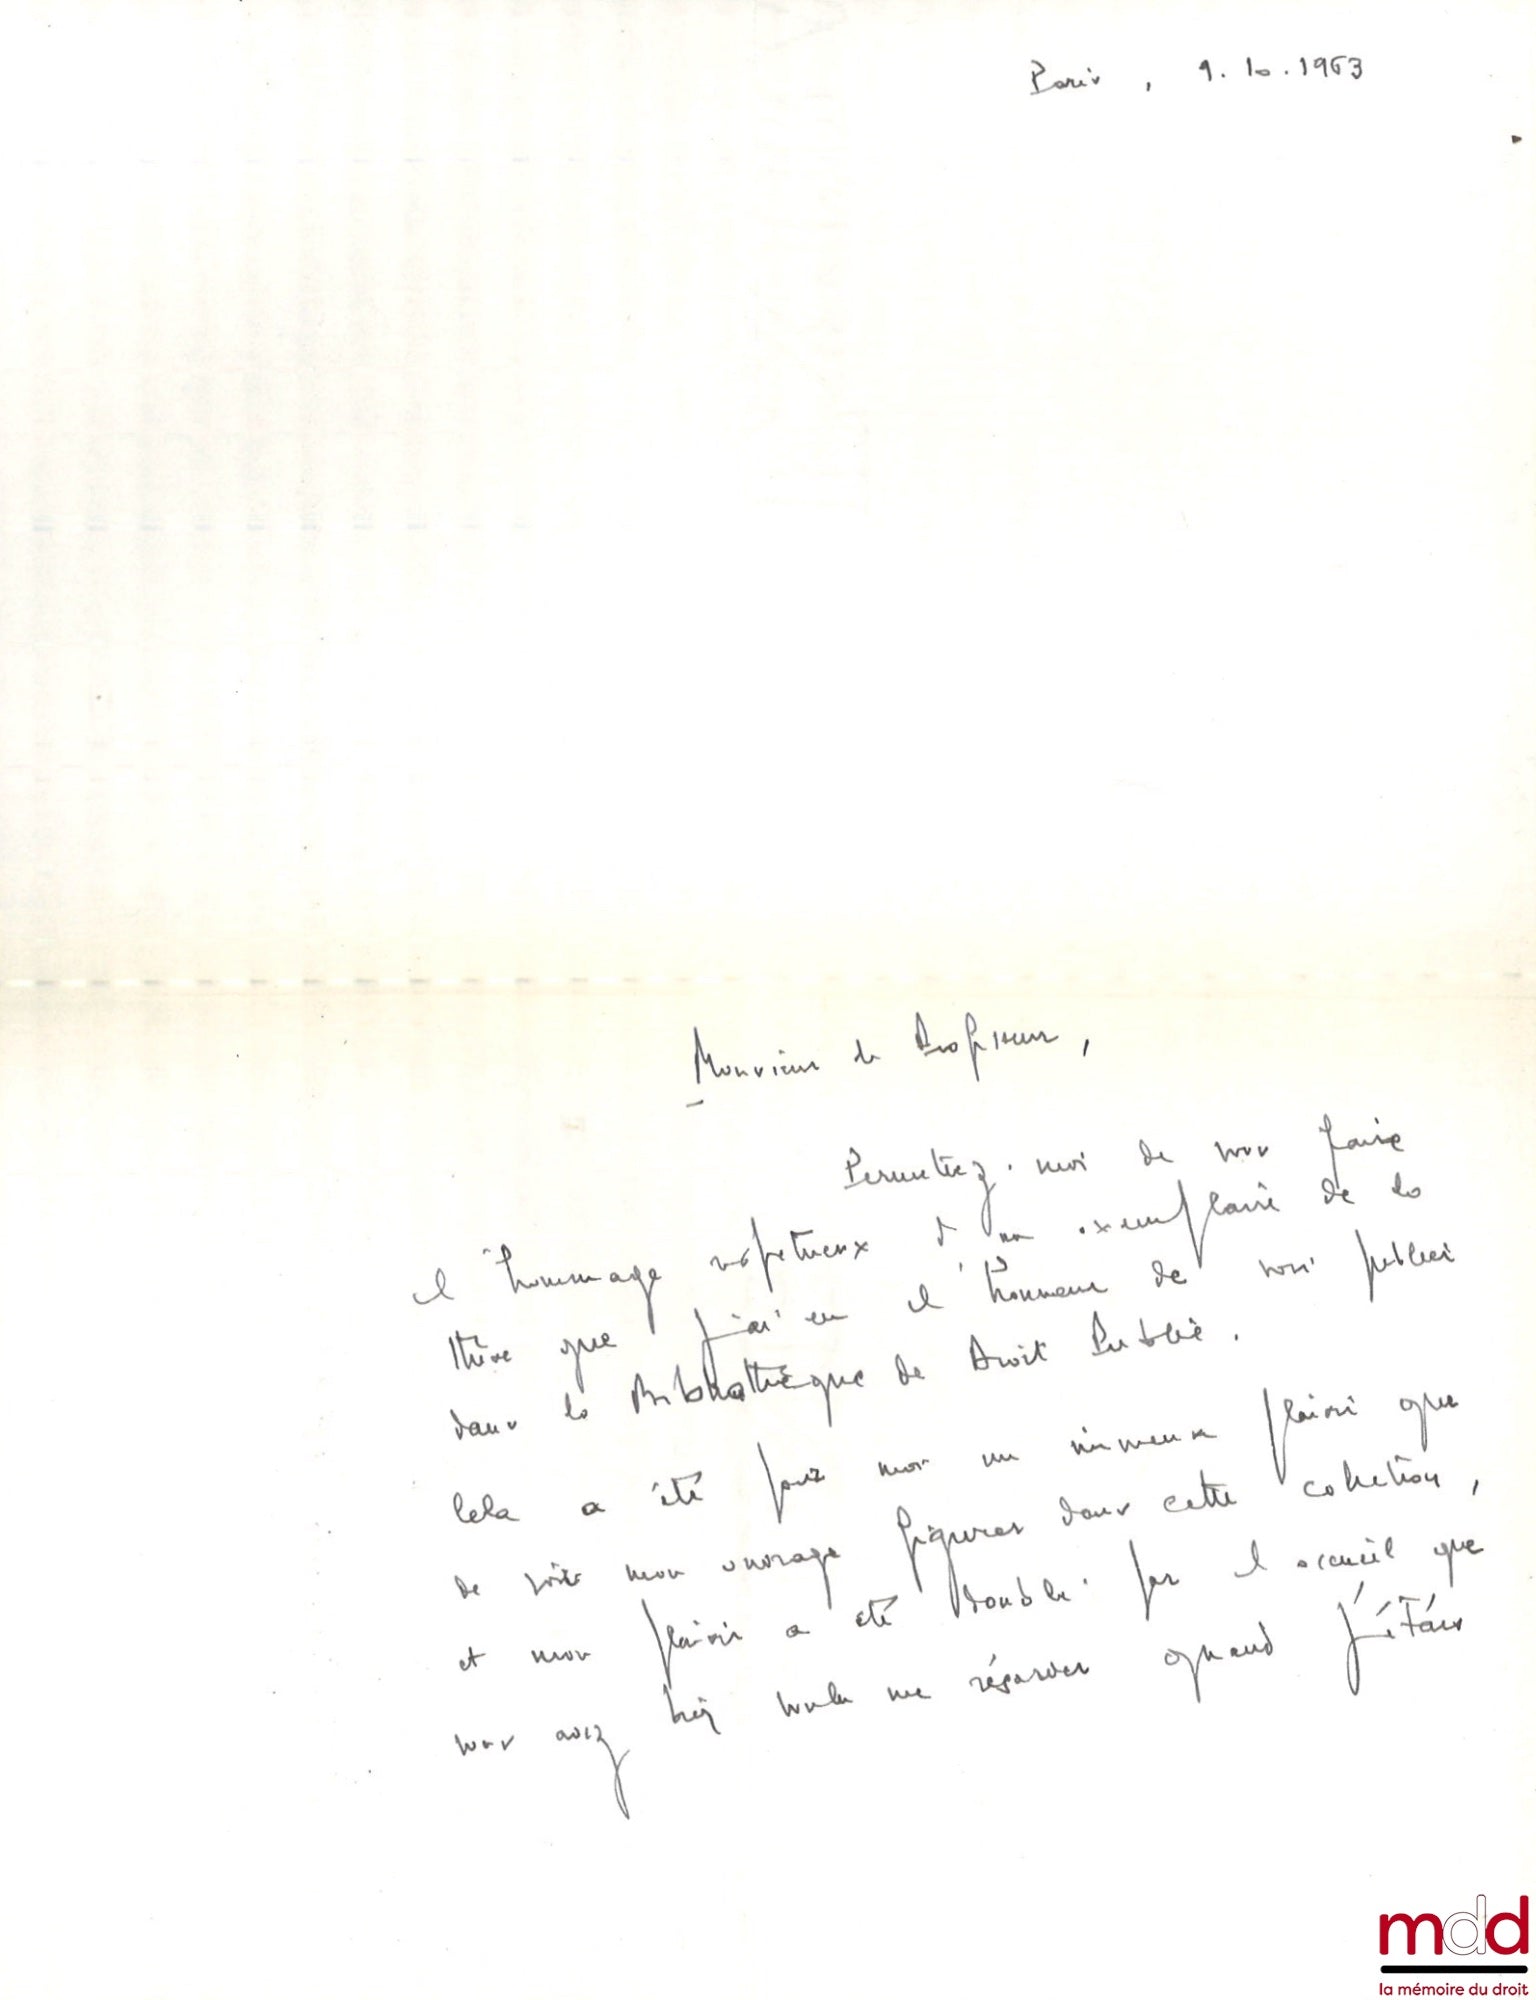 Paris, 9.10.1963
Monsieur le Professeur,
Permettez-moi de vous faire
l'hommage respectueux d'un exemplaire de la
thèse que j'ai eu l'honneur de voir publier
dans la Bibliothèque de Droit Public.
Cela a été pour moi un immense plaisir que
de voir mon ouvrage figurer dans cette collection,
et mon plaisir a été doublé par l'accueil que
vous avez bien voulu me réserver quand j'étais
mdd
la mémoire du droit